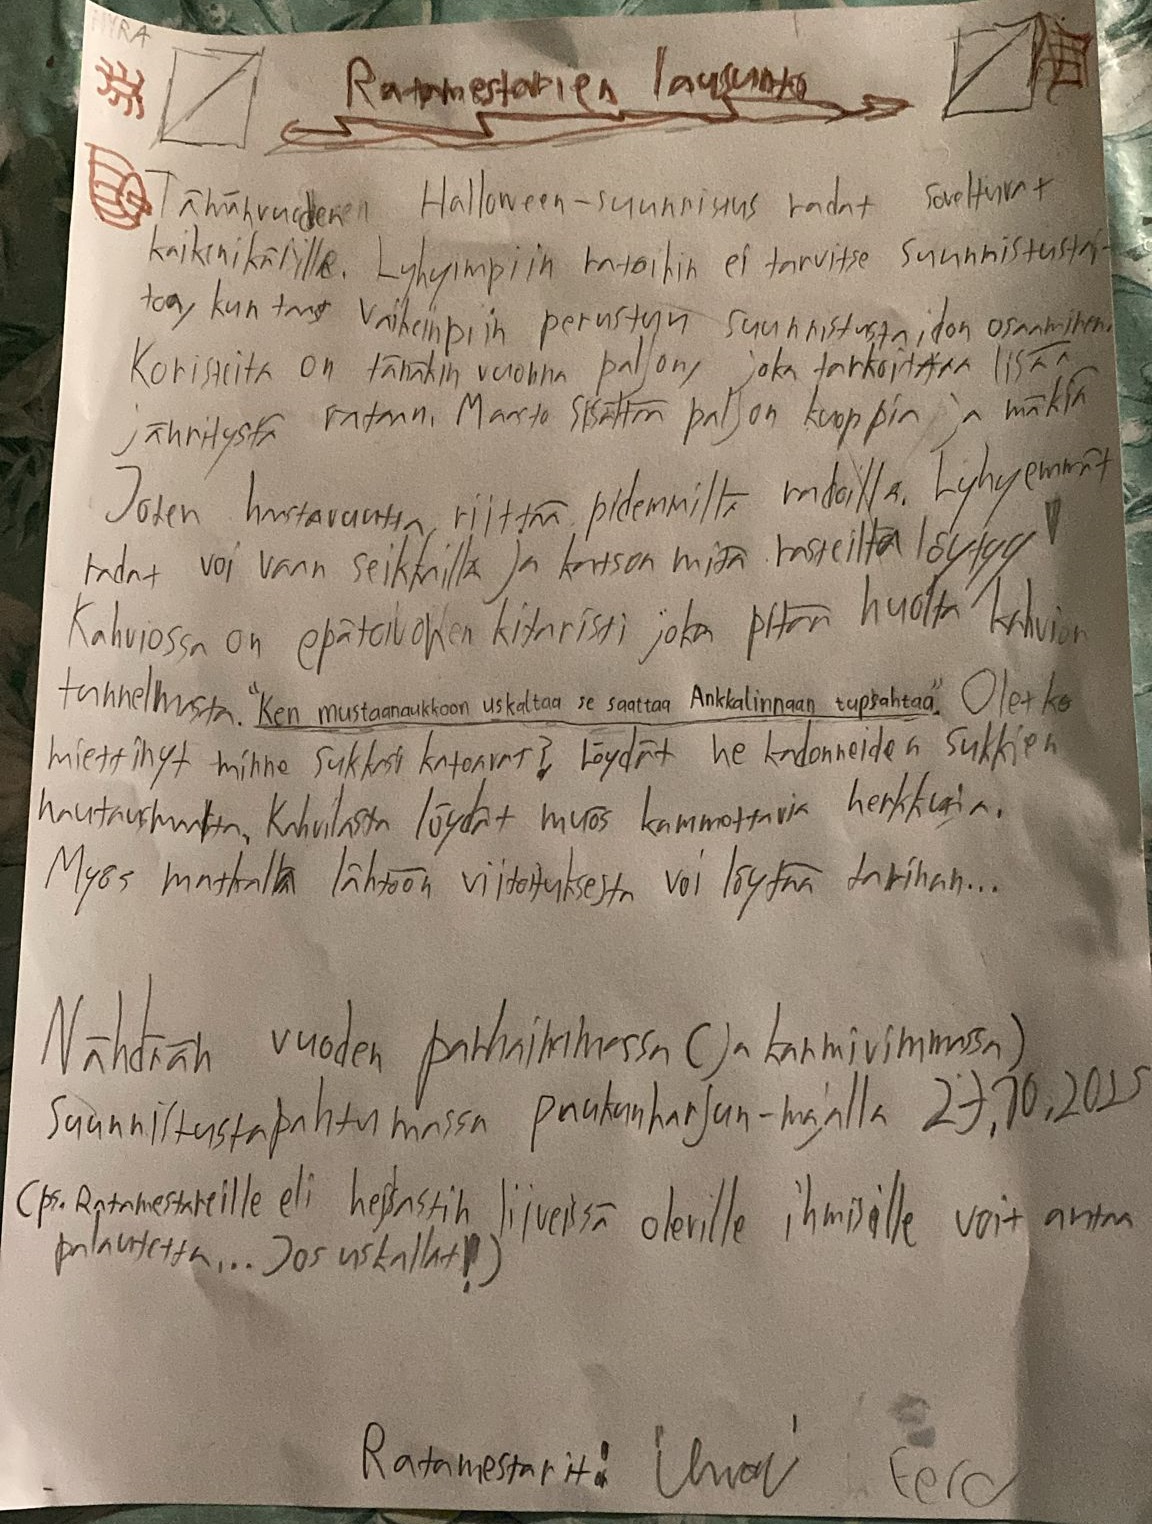 MYRA
Ratamestarien lausunto
Tämänvuoden Halloween-suunnistus radat soveltuvat
kaikenikäisille. Lyhyimpiin ratoihin ei tarvitse suunnistustai-
toa, kun taas vaikeinpiin perustuu suunnistustaidon osaaminen.
Koristeita on tänäkin vuonna paljon, joka tarkoittaa lisää
jännitystä rataan. Maasto sisältää paljon kuoppia ja mäkiä
Joten haastavuutta riittää pidemmiltä radoilla. Lyhyemmät
radat voi vaan seikkailla ja katson mitä rasteilta löytyy!
Kahviossa on epätoivonen kitaristi joka pitää huolta kahvion
tunnelmasta. "Ken mustaanaukkoon uskaltaa se saattaa Ankkalinnaan tupsahtaa". Oletko
miettinyt minne sukkasi katoavat? Löydät ne kadonneiden sukkien
hautausmaalta. Kahvilasta löydät myös kammottavia herkkuja.
Myös matkalla lähtöön viitoituksesta voi löytää tarinan...
Nähdään vuoden parhaimmassa (ja karmivimmassa)
Suunnistustapahtumassa paukunharjun-majalla 27.10.2025
(ps. Ratamestareille eli heijastin liiveissä oleville ihmisille voit antaa
palautetta... Jos uskallat!)
Ratamestarit: